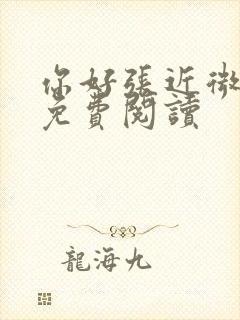 你好張近微
免費閱讀
龍海九